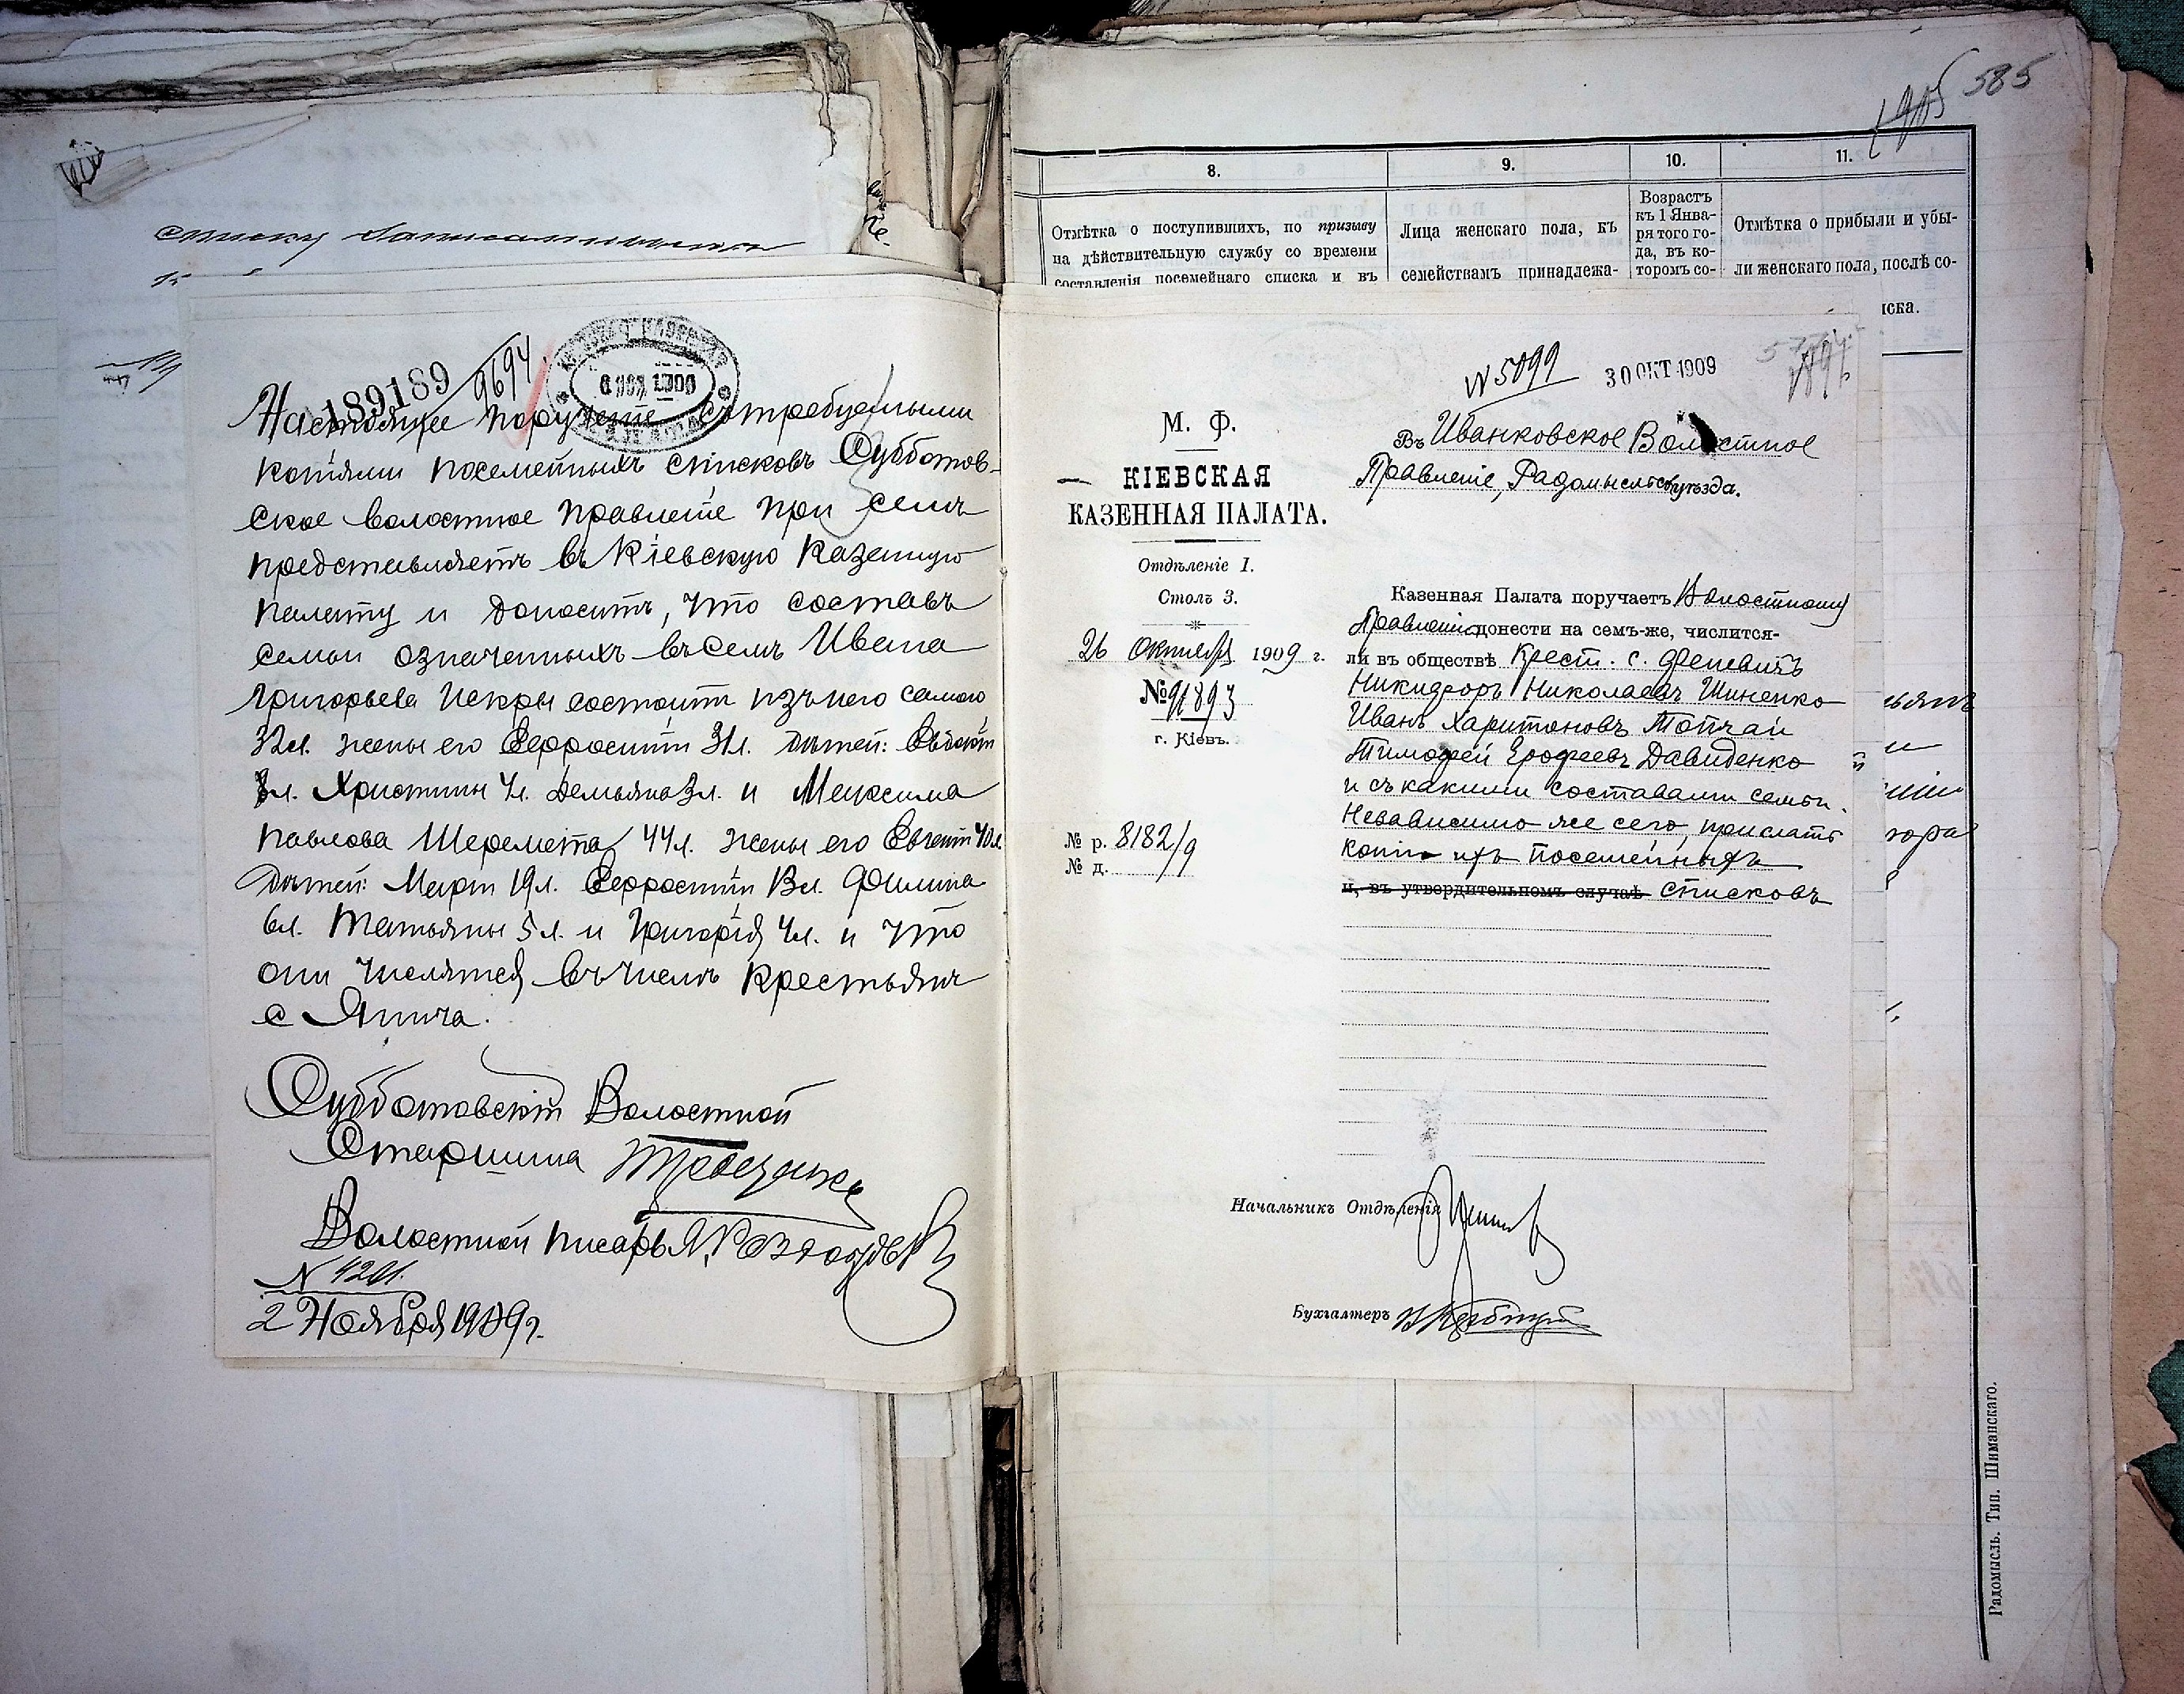 189189
9694
Настоящее порученіе съ требуемыми
копіями посемейныхъ списковъ Субботов-
ское волостное правленіе при семъ
представляетъ въ Кіевскую Казенную
палату и доноситъ, что составъ
семьи означенныхъ въ семъ Ивана
Григорьева Искры состоитъ изъ него самого
32 л. жены его Ефросиніи 31 л. дѣтей:
л. Христины 4 л. Демьяна 3 л. и Максима
Павлова Шеремета 44 л. жены его Евгеніи 40 л.
Дѣтей: Маріи 19 л. Ефросиніи 13 л. Филипа
6 л. Татьяны 5 л. и Григорія 4 л. и что
они числятся въ числѣ крестьянъ
с Янича.
Субботовскій Волостной
Старшина
Волостной писарь
N 4201.
2 Ноября 1909 г.
585
8.
9.
10.
11.
Отмѣтка о поступившихъ, по призыву
на дѣйствительную службу со времени
составленія посемейнаго списка и въ
Лица женскаго пола, къ
семействамъ принадлежа-
Возрастъ
къ 1 Янва-
ря того го-
да, въ ко-
торомъ со-
Отмѣтка о прибыли и убы-
ли женскаго пола, послѣ со-
иска.
N 5099
30 ОКТ 1909
М. Ф.
КІЕВСКАЯ
КАЗЕННАЯ ПАЛАТА.
Отдѣленіе I.
Столъ 3.
26 Октября 1909 г.
№ 91893
г. Кіевъ.
№ р. 8182/9
№ д.
Въ Иванковское Волостное
Правленіе, Радомысльск. уѣзда.
Казенная Палата поручаетъ Волостному
Правленію донести на семъ-же, числится-
ли въ обществѣ Крест. с. Феневичъ
Никифоръ Николаевъ Шиненко
Иванъ Харитоновъ Топчай
Тимофей Ерофеевъ Давиденко
и съ какими составами семьи.
Независимо же сего, прислать
копіи ихъ посемейныхъ
и, въ утвердительномъ случаѣ списковъ
Начальникъ Отдѣленія
Бухгалтеръ
Радомысль. Тип. Шиманскаго.